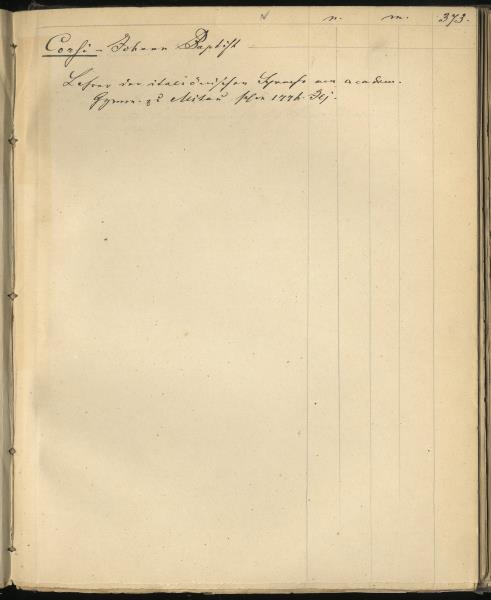 n. m. 373.
Corsi - Johann Baptist
Lehrer der italiänischen Sprache am academ.
Gymn. zu Mitau schon 1776.